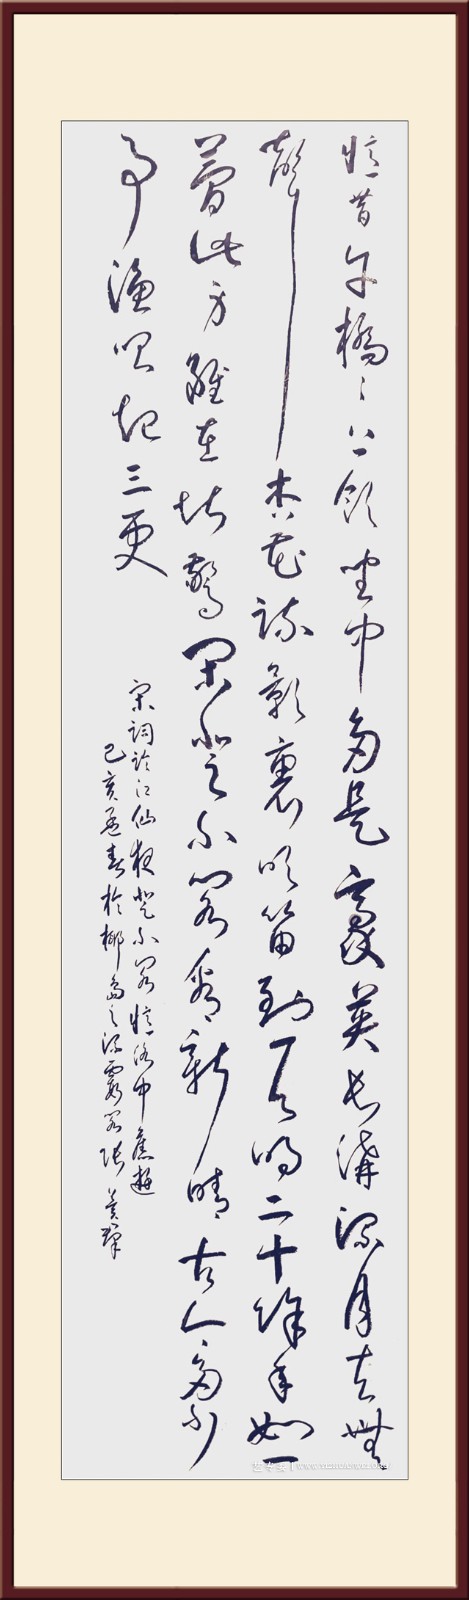 憶昔午橋〻上飲坐中多是豪英長溝流月去無
聲杏花疏影裏吹笛到天明二十餘年如一
夢此身雖在堪驚閑登小閣看新晴古今多少
事漁唱起三更
宋詞臨江仙夜登小閣憶洛中舊遊
己亥孟春於椰島之